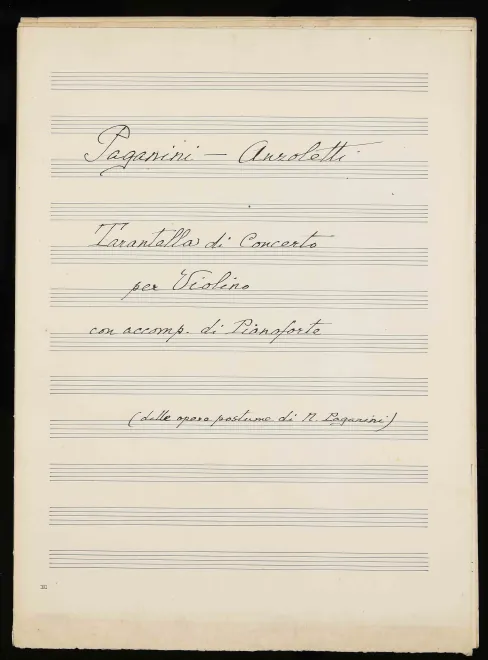 Paganini — Anzoletti
Tarantella di Concerto
per Violino
con accomp. di Pianoforte
(dalle opere postume di N. Paganini)